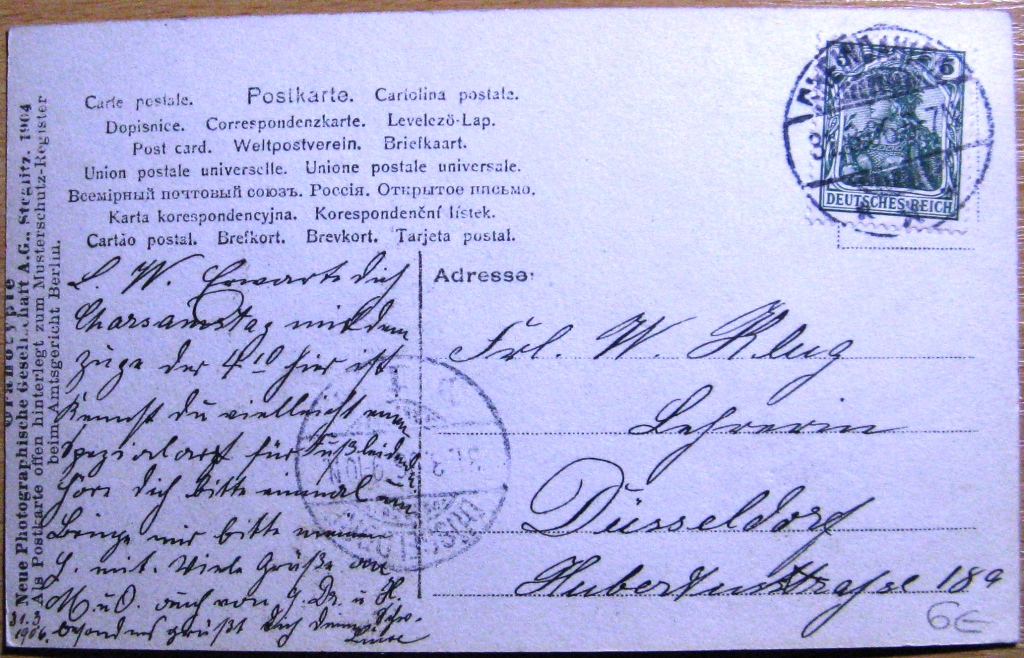 Carte postale. Postkarte. Cartolina postale.
Dopisnice. Correspondenzkarte. Levelező-Lap.
Post card. Weltpostverein. Briefkaart.
Union postale universelle. Unione postale universale.
Всемірный почтовый союзъ. Россія. Открытое письмо.
Karta korespondencyjna. Korespondenční lístek.
Cartão postal. Brefkort. Brevkort. Tarjeta postal.
Neue Photographische Gesellschaft A.G., Steglitz. 1904
Als Postkarte offen hinterlegt zum Musterschutz-Register
beim Amtsgericht Berlin.
5
DEUTSCHES REICH
L. W. Erwarte dich
Charsamstag mit dem
Zuge der 4 10 hier ist
Kennst du vielleicht einen
Spezialarzt für Fußleiden
höre dich bitte einmal um
Bringe mir bitte meinen
mit. Viele Grüße von
M u O. auch von
besonders grüßt dich deine
31.3
1906.
Adresse:
Frl. W. Klug
Lehrerin
Düsseldorf
Hubertusstrasse 18a
6€